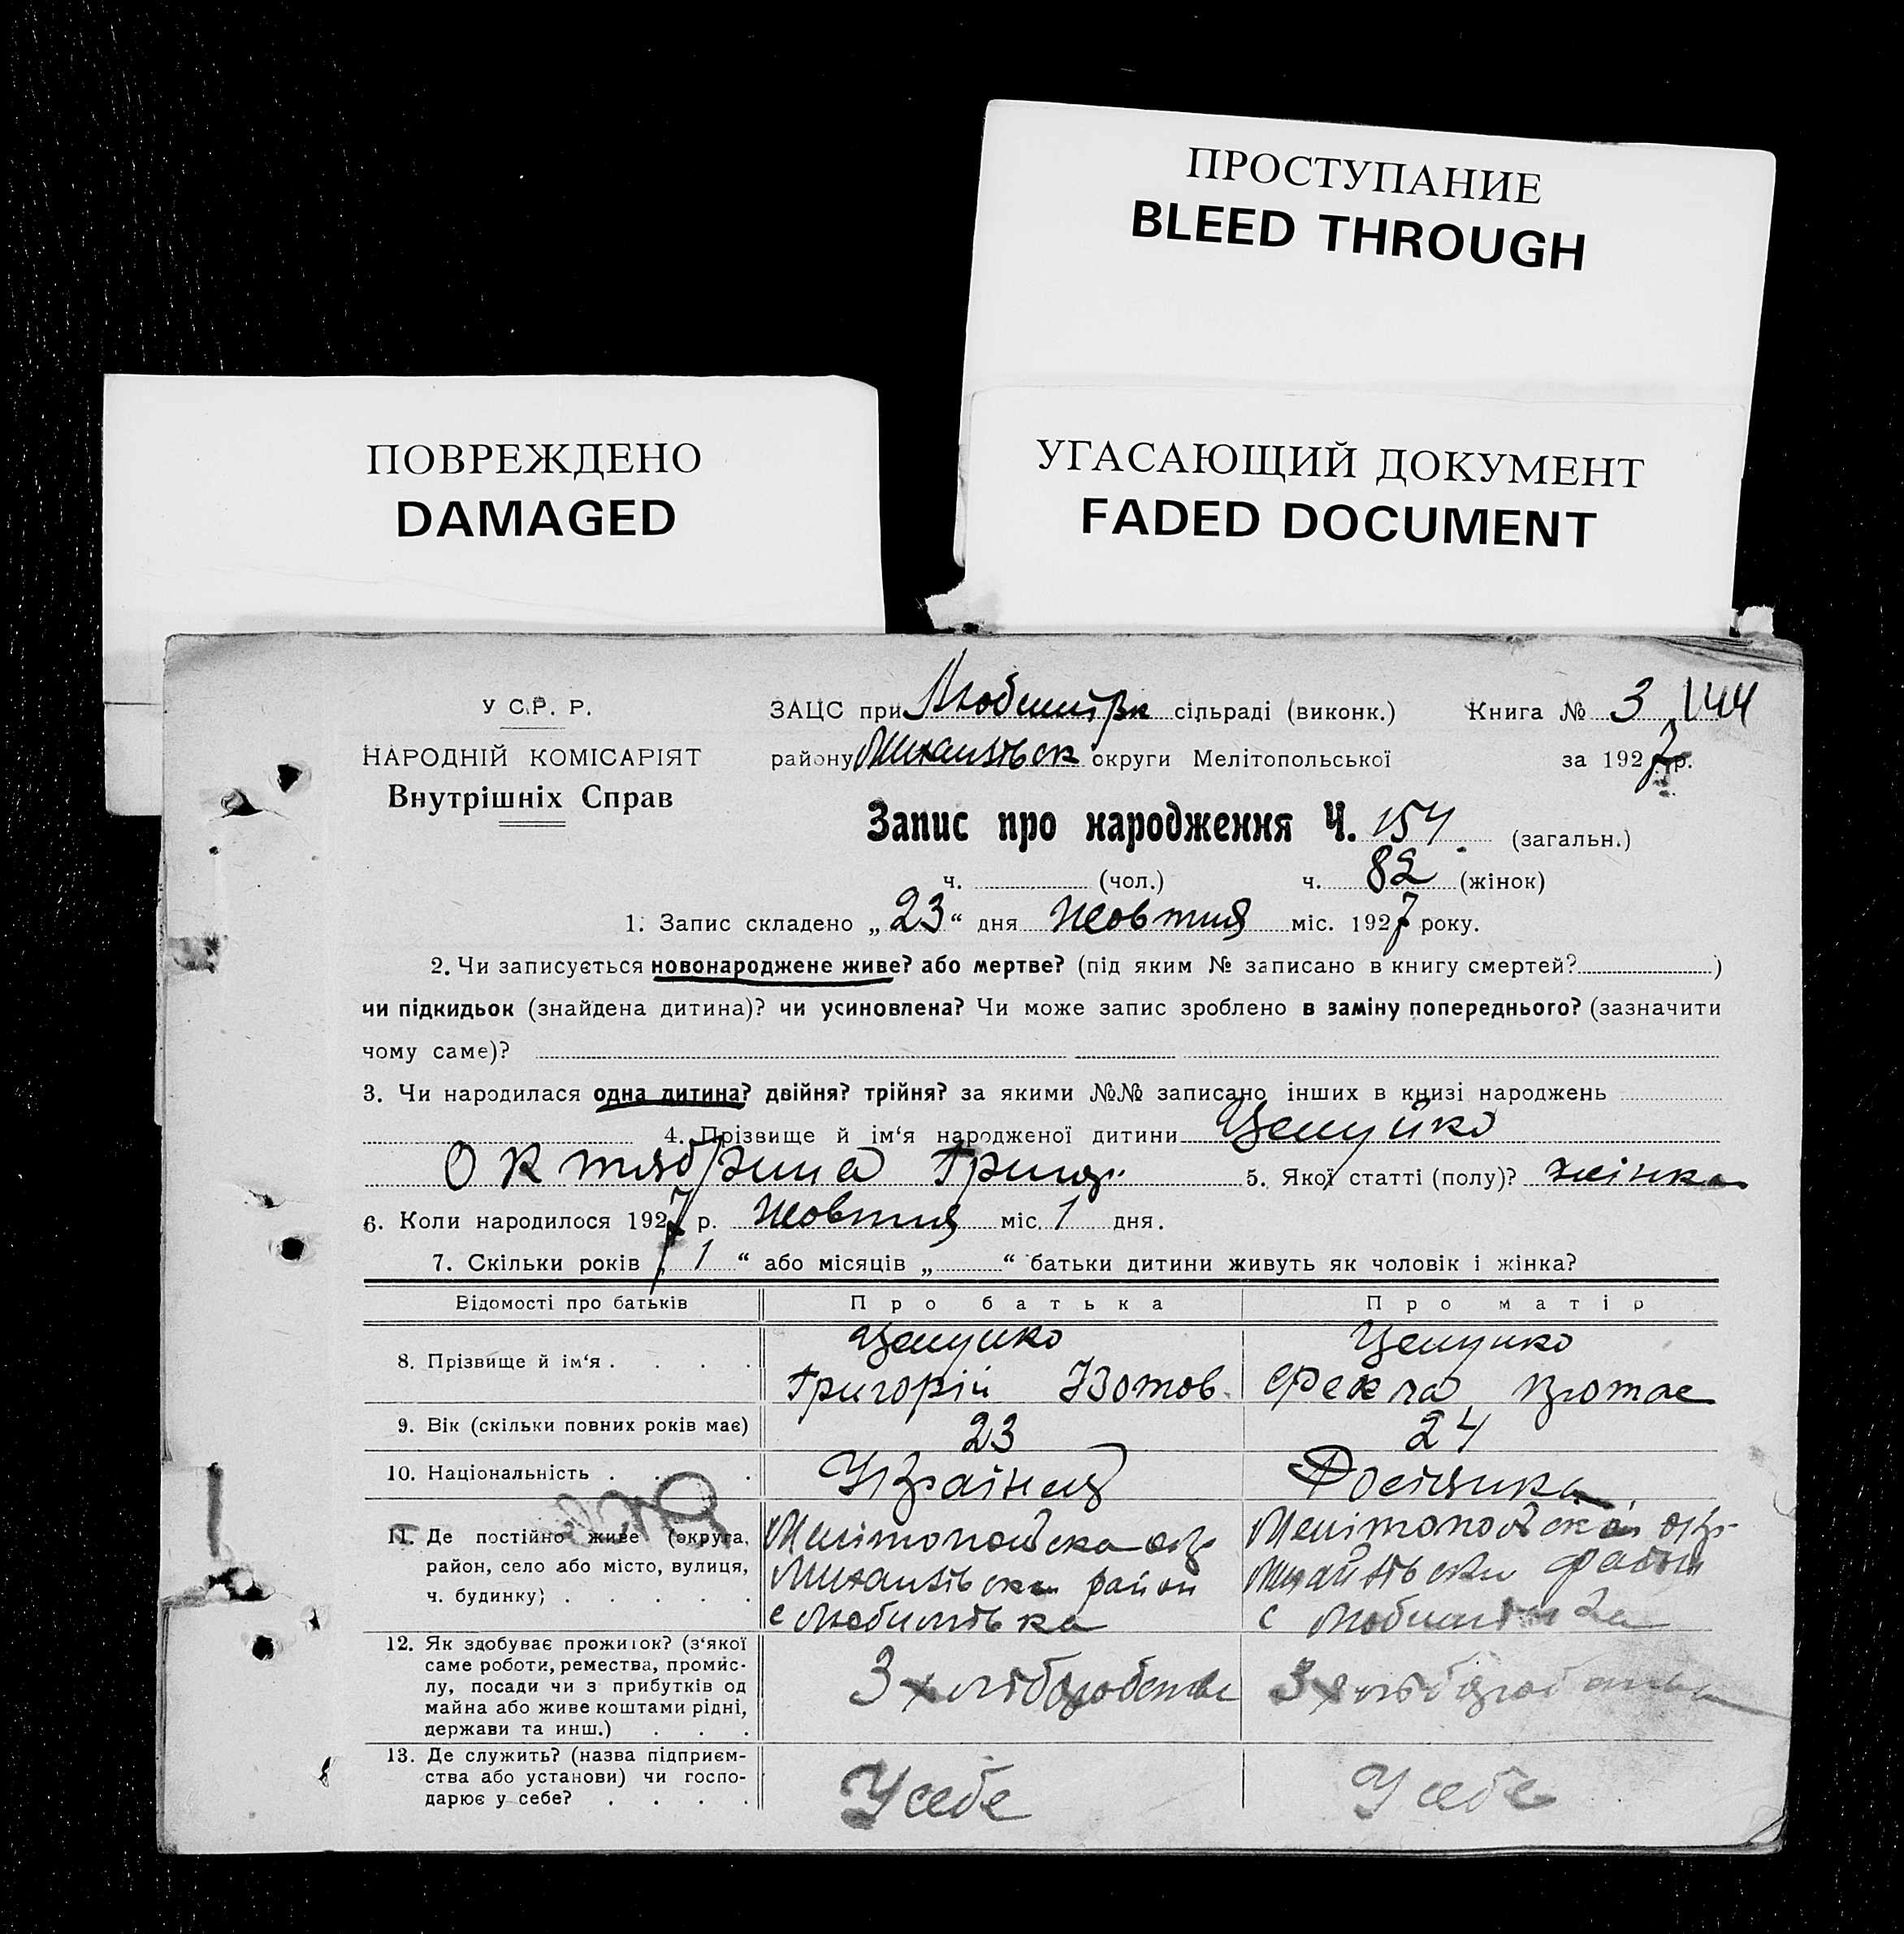 ПРОСТУПАНИЕ
BLEED THROUGH
ПОВРЕЖДЕНО
DAMAGED
УГАСАЮЩИЙ ДОКУМЕНТ
FADED DOCUMENT
У С.Р. Р.
НАРОДНІЙ КОМІСАРІЯТ
Внутрішніх Справ
ЗАЦС при сільраді (виконк.) Книга № 3 144
району округи Мелітопольської за 1927 р.
Запис про народження Ч. 154 (загальн.)
ч. (чол.) ч. 82 (жінок)
1. Запис складено „23“ дня Жовтня міс. 1927 року.
2. Чи записується новонароджене живе? або мертве? (під яким № записано в книгу смертей? )
чи підкидьок (знайдена дитина)? чи усиновлена? Чи може запис зроблено в заміну попереднього? (зазначити
чому саме)?
3. Чи народилася одна дитина? двійня? трійня? за якими №№ записано інших в книзі народжень
4. Прізвище й ім‘я народженої дитини Цемуйко
Октябрина Григор. 5. Якої статті (полу)? жінка
6. Коли народилося 1927 р. Жовтня міс. 1 дня.
7. Скільки років „ 1 “ або місяців „ “ батьки дитини живуть як чоловік і жінка?
Відомості про батьків Про батька Про матір
8. Прізвище й ім‘я . . . . Цемуйко Цемуйко
Григорій Ізотов. Фекла
9. Вік (скільки повних років має) 23 24
10. Національність . . . Українець Росіянка
11. Де постійно живе (округа, Мелітопольська окр Мелітопольська окр.
район, село або місто, вулиця, Михайлівськ район район
ч. будинку) . . . . . с Любимівка с Любимівка
12. Як здобуває прожиток? (з‘якої
саме роботи, ремества, промис-
лу, посади чи з прибутків од З хліборобства З хліборобства
майна або живе коштами рідні,
держави та инш.) . . .
13. Де служить? (назва підприєм-
ства або установи) чи госпо- У себе У себе
дарює у себе? . . . .